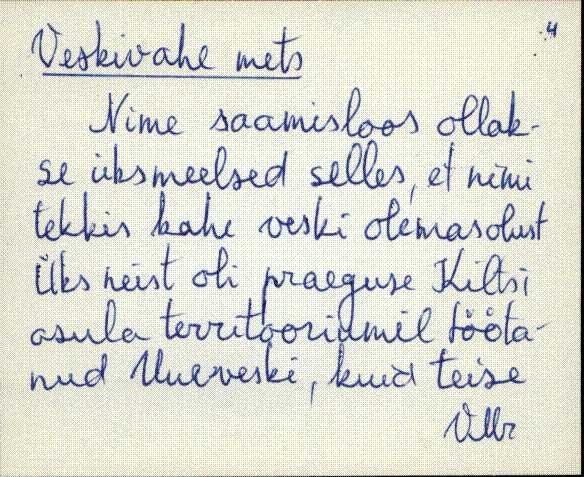 4
Veskivahe mets
Nime saamisloos ollak-
se üksmeelsed selles, et nimi
tekkis kahe veski olemasolust
Üks neist oli praeguse Kiltsi
asula territooriumil tööta-
nud Uueveski, kuid teise
Vllr